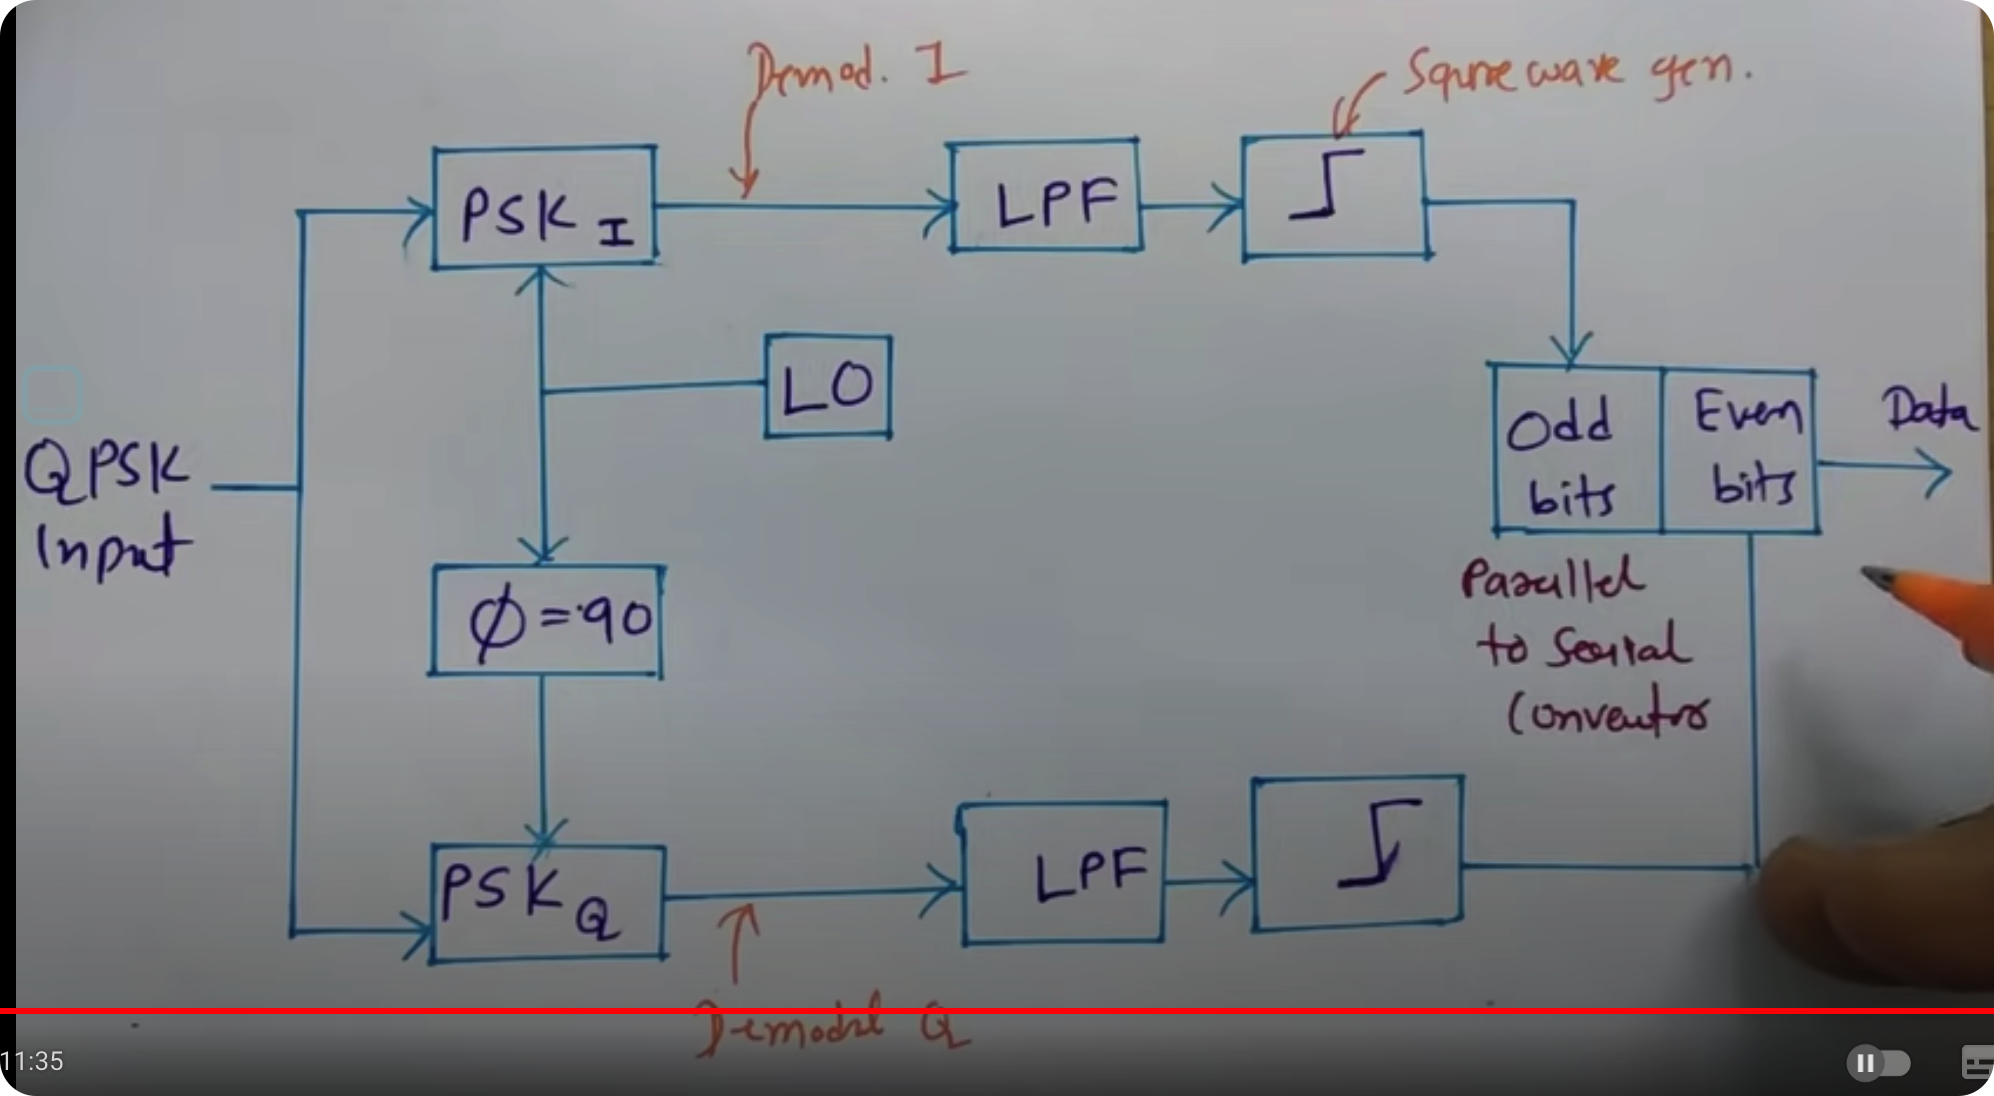 Demod. I
Squre wave gen.
PSK I
LPF
LO
QPSK
Input
Odd
bits
Even
bits
Data
φ = 90
Parallel
to Serial
Conventro
PSK Q
LPF
Demodul Q
11:35